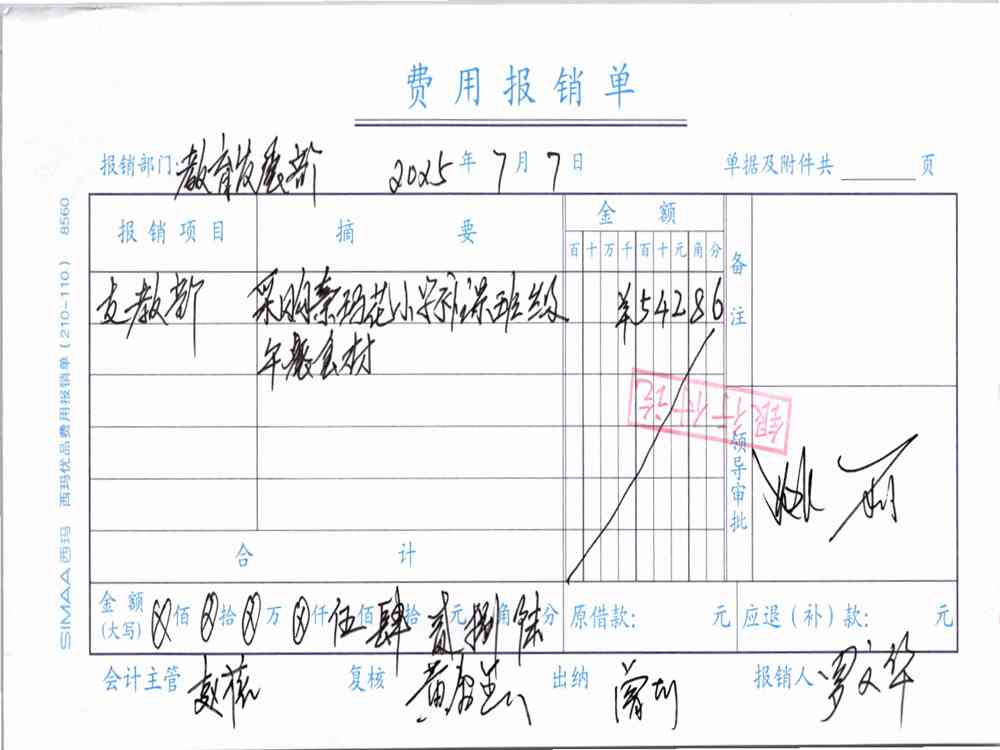 费用报销单
报销部门:教育发展部 2025年7月7日 单据及附件共 页
报销项目 摘要 金额 备注
百十万千百十元角分
支教部 采购索玛花小学班级 ¥54286
午餐食材
银行付讫
领导审批
合计
金额(大写) ⊗佰⊗拾⊗万⊗仟伍佰肆拾贰元捌角陆分 原借款: 元 应退(补)款: 元
会计主管 复核 出纳 报销人 罗文华
SIMAA西玛 西玛优品费用报销单(210-110) 8560